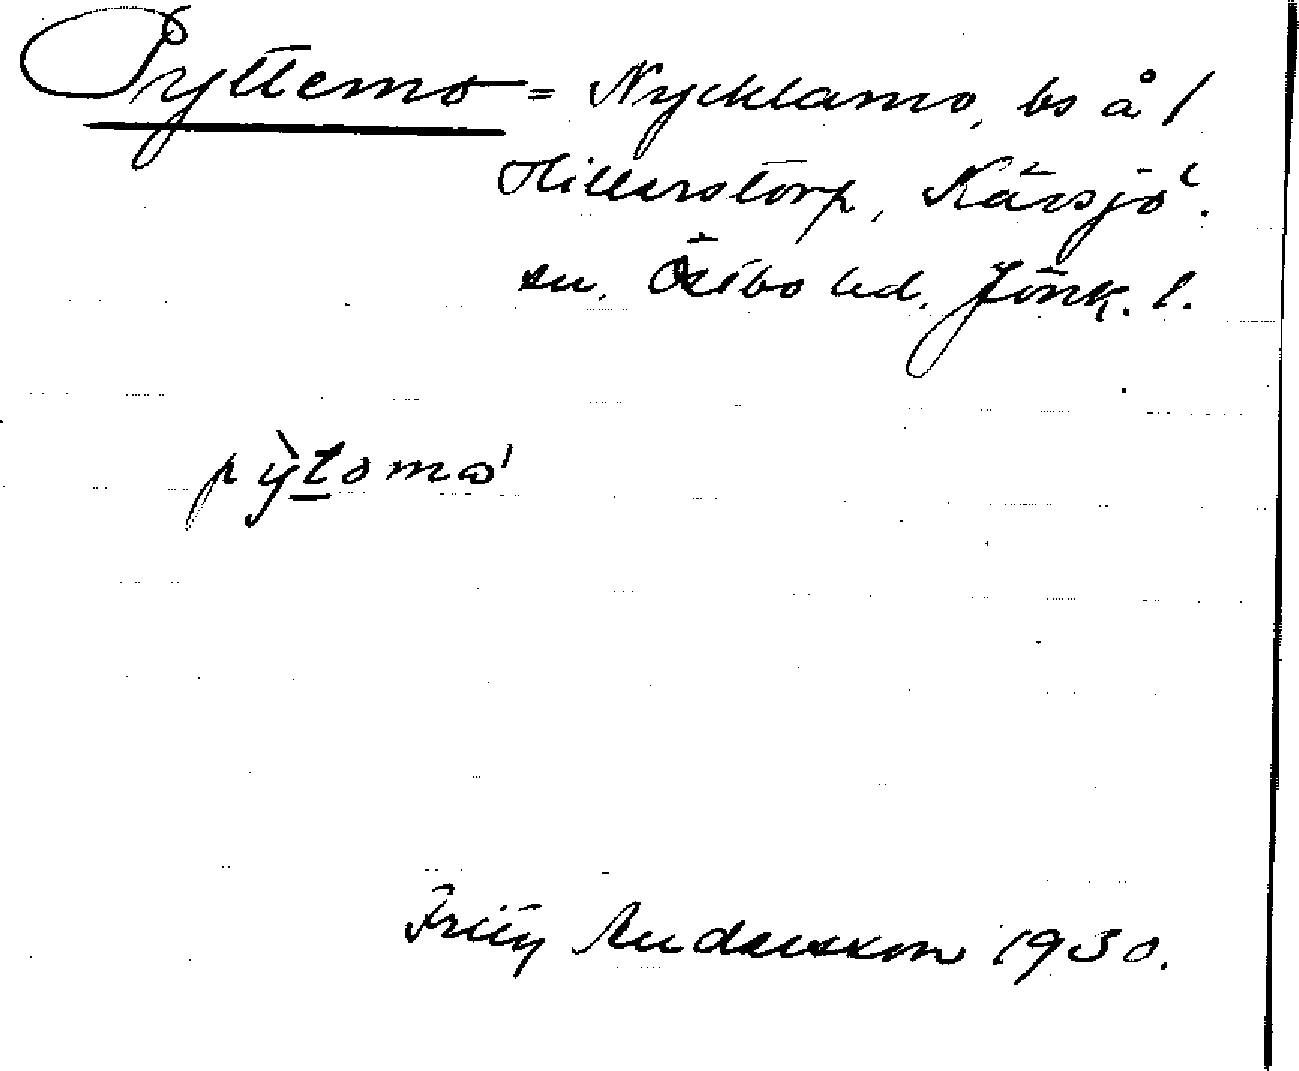 Pyttemo = Nycklamo, bs å /
Hillerstorp, Kärsjö.
sn. Östbo hd. Jönk. l.
pỳtoma'
Fritz Andersson 1930.